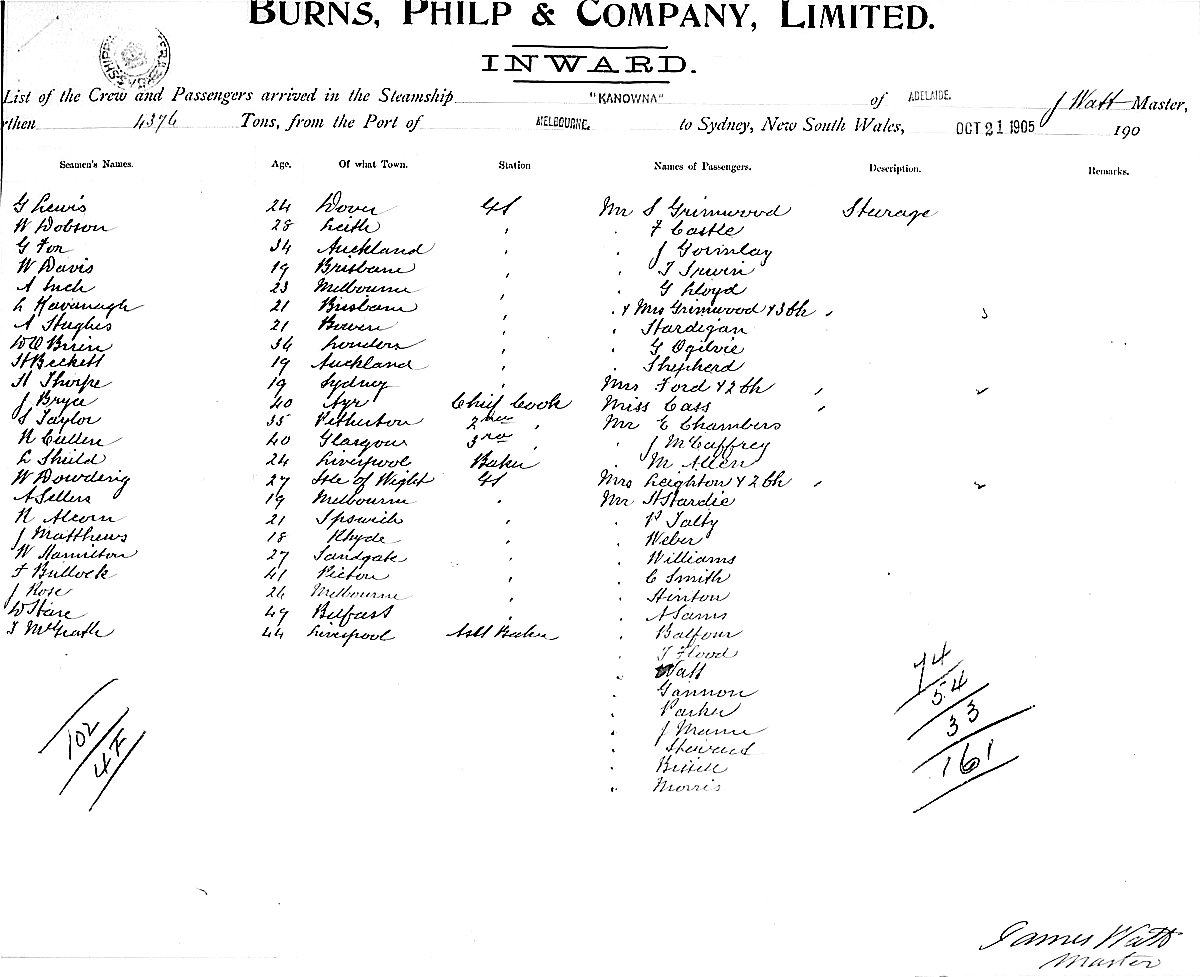 BURNS, PHILP & COMPANY, LIMITED.
INWARD.
List of the Crew and Passengers arrived in the Steamship "KANOWNA" of ADELAIDE. J Watt Master,
rthen 4376 Tons, from the Port of MELBOURNE. to Sydney, New South Wales, OCT 21 1905 190
Seamen's Names. Age. Of what Town. Station Names of Passengers. Description. Remarks.
G Lewis 24 Dover GS Mr S Grimwood Steerage
W Dobson 28 Leith " F Castle
G Fox 34 Auckland " J Gormlay
W Davis 19 Brisbane " T Irwin
A Inch 23 Melbourne " G Lloyd
L Kavanagh 21 Brisbane " & Mrs Grimwood & 3 Ch " 3
A Hughes 21 Bowen " Hardigan
34 London " G Ogilvie
H Beckett 19 Auckland " Shepherd
H Thorpe 19 Sydney " Mrs Ford & 2 Ch " 2
J Bryce 40 Ayr Chief Cook Miss Cass "
S Taylor 35 Petherton 2nd " Mr E Chambers
N Cullen 40 Glasgow 3rd " J McCaffrey
L Shield 24 Liverpool Baker M Allen
W Dowding 27 Isle of Wight GS Mrs Leighton & 2 Ch " 2
A Sellers 19 Melbourne " Mr H Hardie
N Alcorn 21 Ipswich " P Talty
J Matthews 18 Rhyde " Weber
W Hamilton 27 Sandgate " Williams
F Bullock 41 Picton " C Smith
J Rose 26 Melbourne " Hinton
W Hare 49 Belfast " A Sams
T McGrath 44 Liverpool Asst Baker " Balfour
" T Flood
" Watt
" Gannon
" Parker
" J Mann
" Steward
"
" Morris
74
54
33
161
102
47
James Watt
Master